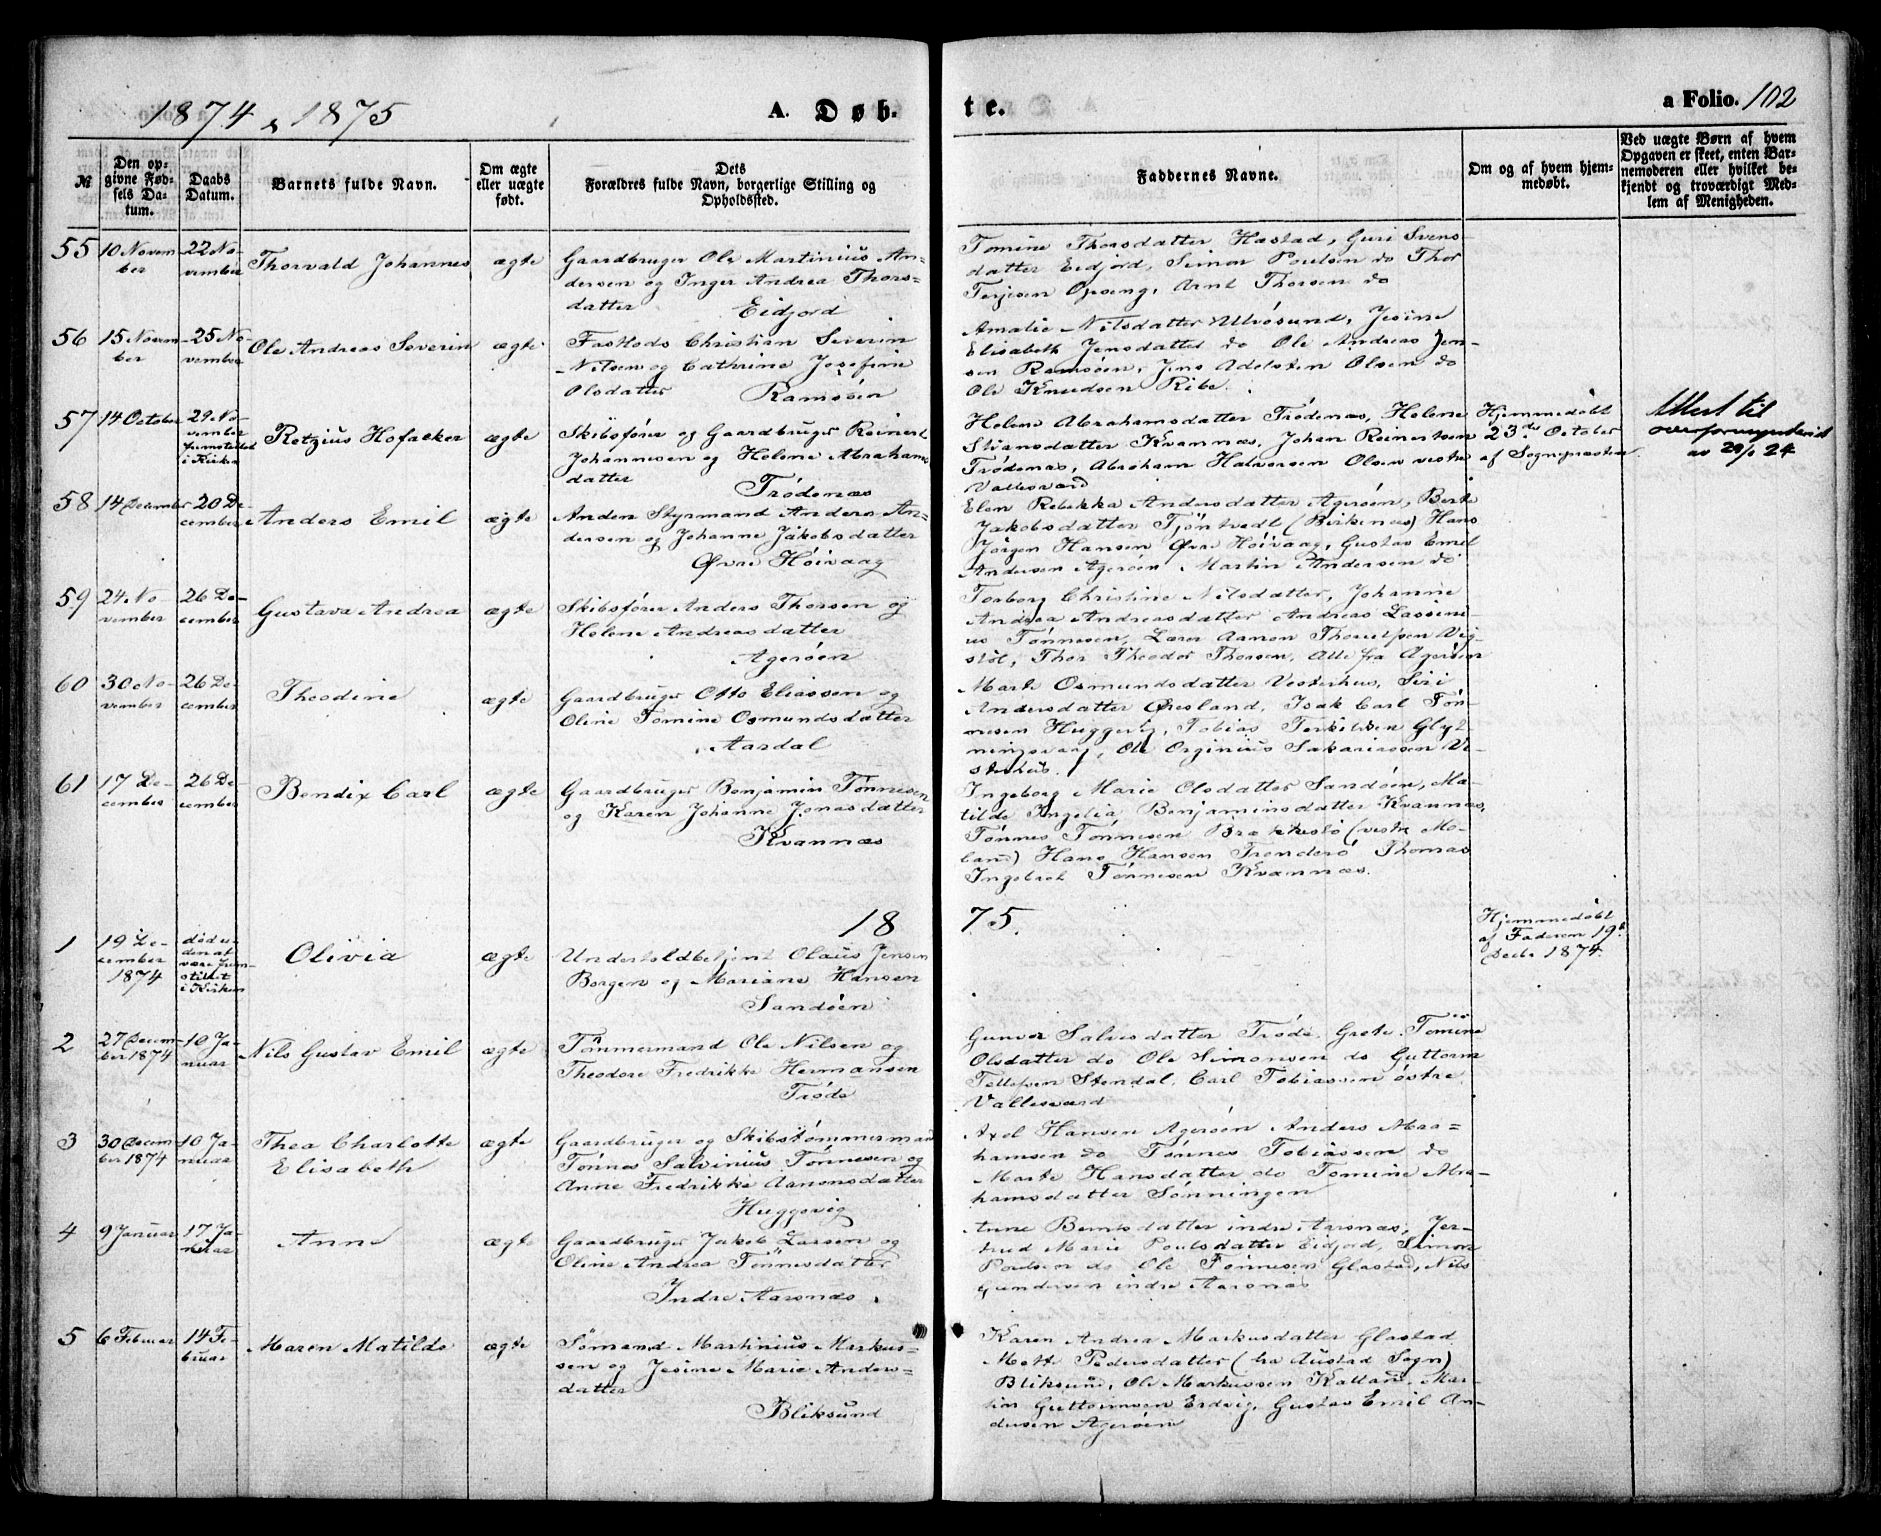 1874 & 1875
A. Døb-
te.
a Folio. 102
№
Den op-
givne Fød-
sels Da-
tum.
Daabs
Datum.
Barnets fulde Navn.
Om ægte
eller uægte
født.
Dets
Forældres fulde Navn, borgerlige Stilling og
Opholdssted.
Faddernes Navne.
Om og af hvem hjem-
medøbt.
Ved uægte Børn af hvem
Opgaven er skeet, enten Bar-
nemoderen eller hvilket be-
kjendt og troværdigt Med-
lem af Menigheden.
55
10 Novem
ber
22 No-
vember
Thorvald Johannes
ægte
Gaardbruger Ole Martinius An-
dersen og Inger Andrea Thors-
datter
Eidjord
Tomine Thorsdatter Hæstad, Guri Svens-
datter Eidjord, Simon Poulsen do Thor
Terjesen Opseng, Arnt Thorsen do
56
15 Novem
ber
25 No-
vember
Ole Andreas Severin
ægte
Christian Severin
Nilsen og Cathrine Josefine
Olsdatter
Ramsøen
Amalie Nilsdatter Ulvøsund, Jesine
Elisabeth Jensdatter do Ole Andreas Jen-
sen Ramsøen, Jens Adelsten Olsen do
Ole Knudsen Ribe.
57
14 October
29 No-
vember
fremstillet
i Kirken
Retzius Hofacker
ægte
Skibsfører og Gaardbruger Reinert
Johannesen og Helene Abrahams
datter
Trødenæs
Helene Abrahamsdatter Trødenæs, Helene
Stiansdatter Kvannæs, Johan Reinertsen
Trødenæs, Abraham Halvorsen Olsen vestre
Vallesværd
Hjemmedøbt
23de October
af Sognepresten
Attest til
overformynderiet
av 29/1 24
58
14 December
20 De-
cember
Anders Emil
ægte
Anden Styrmand Anders An-
dersen og Johanne Jakobsdatter
Øvre Høivaag
Elen Rebekka Andersdatter Agerøen, Berte
Jakobsdatter Tjøntvedt (Birkenæs) Hans
Jørgen Hansen Øvre Høivaag, Gustav Emil
Andersen Agerøen Martin Andersen do
59
24 No
vember
26 De-
cember
Gustava Andrea
ægte
Skibsfører Anders Thorsen og
Helene Andreasdatter
Agerøen
Torborg Christine Nilsdatter, Johanne
Andrea Andreasdatter Andreas Lasseni-
us Tønnesen, Lærer Aanon
Thor Theodor Thorsen, Alle fra Agerøen
60
30 No-
vember
26 De-
cember
Theodine
ægte
Gaardbruger Otto Eliassen og
Oline Tomine Osmundsdatter
Aardal
Marte Osmundsdatter Vesterhus, Siri
Andersdatter Øresland, Isak Carl Tøn-
nesen Huggevig, Tobias Terkildsen Glyt-
ningsvaag, Ole Orginius Sakariassen Ve-
sterhus.
61
17 De-
cember
26 De-
cember
Bendix Carl
ægte
Gaardbruger Benjamin Tønnesen
og Karen Johanne Jonasdatter
Kvannæs
Ingeborg Marie Olsdatter Sandøen, Ma-
tilde Ingelia Benjaminsdatter Kvannæs,
Tønnes Tønnesen Brækkestø (vestre Mo-
land) Hans Hansen Trenderø Thomas
Ingebret Tønnesen Kvannæs.
18
75.
1
19 De-
cember
1874
død u-
den at
være frem-
stillet
i Kirken
Olivia
ægte
Undertoldbetjent Olaus Jensen
Borgen og Mariane Hansen
Sandøen
Hjemmedøbt
af Faderen 19de
Decbr 1874.
2
27 Decem-
ber 1874
10 Ja-
nuar
Nils Gustav Emil
ægte
Tømmermand Ole Nilsen og
Theodore Fredrikke Hermansen
Trøde
Gunvor Salvesdatter Trøde. Grete Tomine
Olsdatter do Ole Simonsen do Guttorm
Tellefsen Stendal. Carl Tobiassen østre
Vallesværd
3
30 Decem-
ber 1874
10 Ja-
nuar
Thea Charlotte
Elisabeth
ægte
Gaardbruger og Skibstømmermand
Tønnes Salvinius Tønnesen og
Anne Fredrikke Aanonsdatter
Huggevig
Axel Hansen Agerøen Anders Abra-
hamsen do Tønnes Tobiassen do
Marte Hansdatter do Tomine Abra-
hamsdatter Sønningen
4
9 Januar
17 Ja-
nuar
Anne
ægte
Gaardbruger Jakob Larsen og
Oline Andrea Tønnesdatter
Indre Aarsnæs
Anne Berntsdatter indre Aarsnæs, Jer-
trud Marie Poulsdatter Eidjord, Simon
Poulsen do Ole Tønnesen Glastad, Nils
Gundersen indre Aarsnæs
5
6 Februar
14 Fe-
bruar
Maren Matilde
ægte
Sømand Martinius Markus-
sen og Jesine Marie Anders-
datter
Bliksund
Karen Andrea Markusdatter Glastad
Mett Pedersdatter (fra Austad Sogn)
Bliksund, Ole Markussen Kalland, Mar-
tin Guttormsen Eidvig, Gustav Emil An-
dersen Agerøen